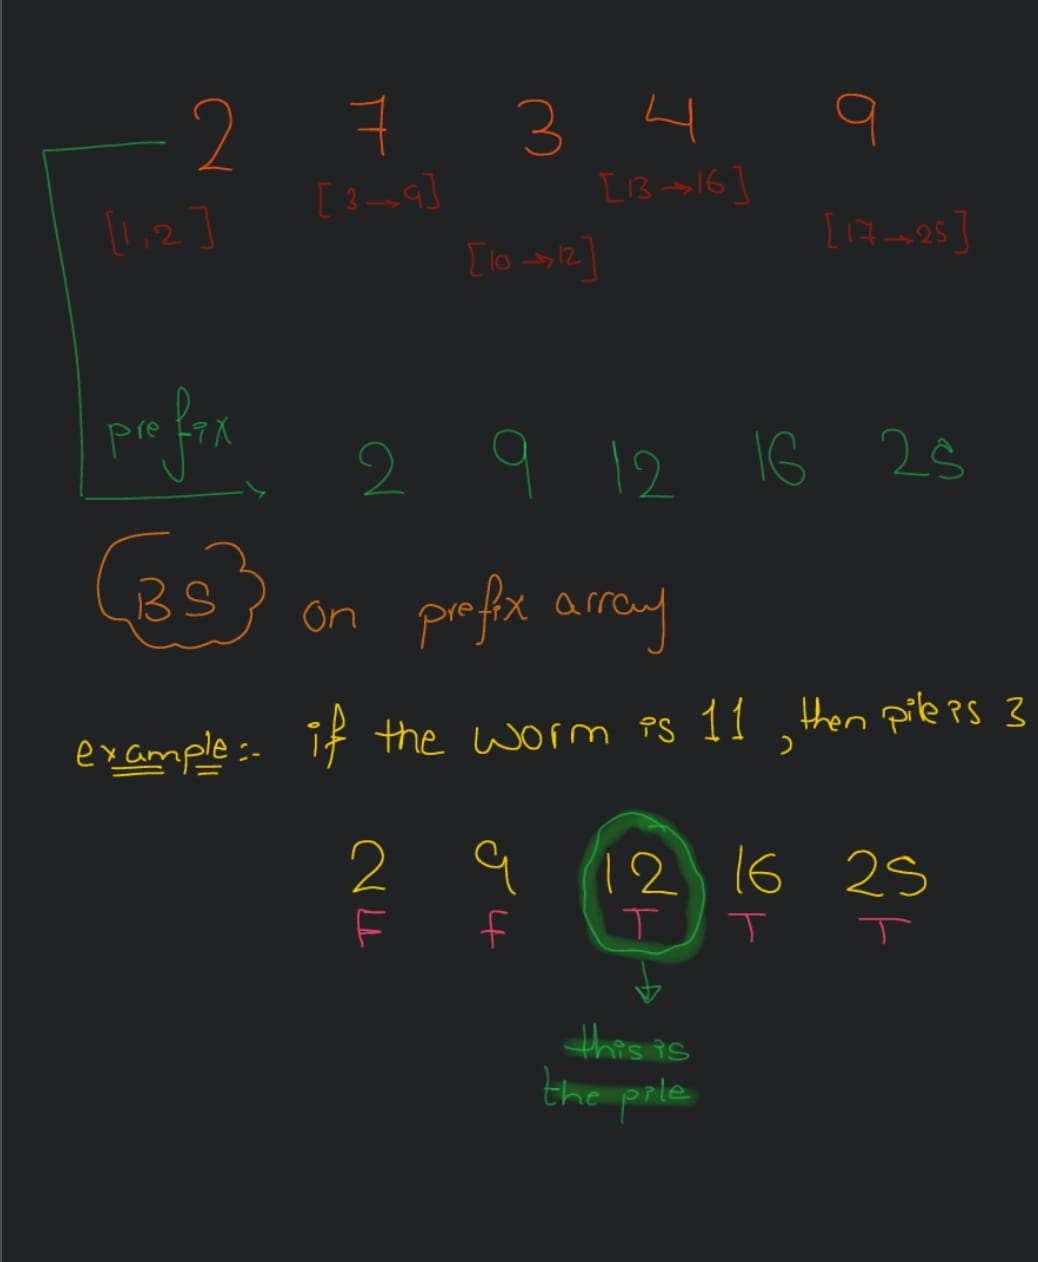 2 7 3 4 9
[1,2] [3→9] [10→12] [13→16] [17→25]
prefix 2 9 12 16 25
BS on prefix array
example:- if the worm is 11, then pile is 3
2 9 12 16 25
F F T T T
this is
the pile